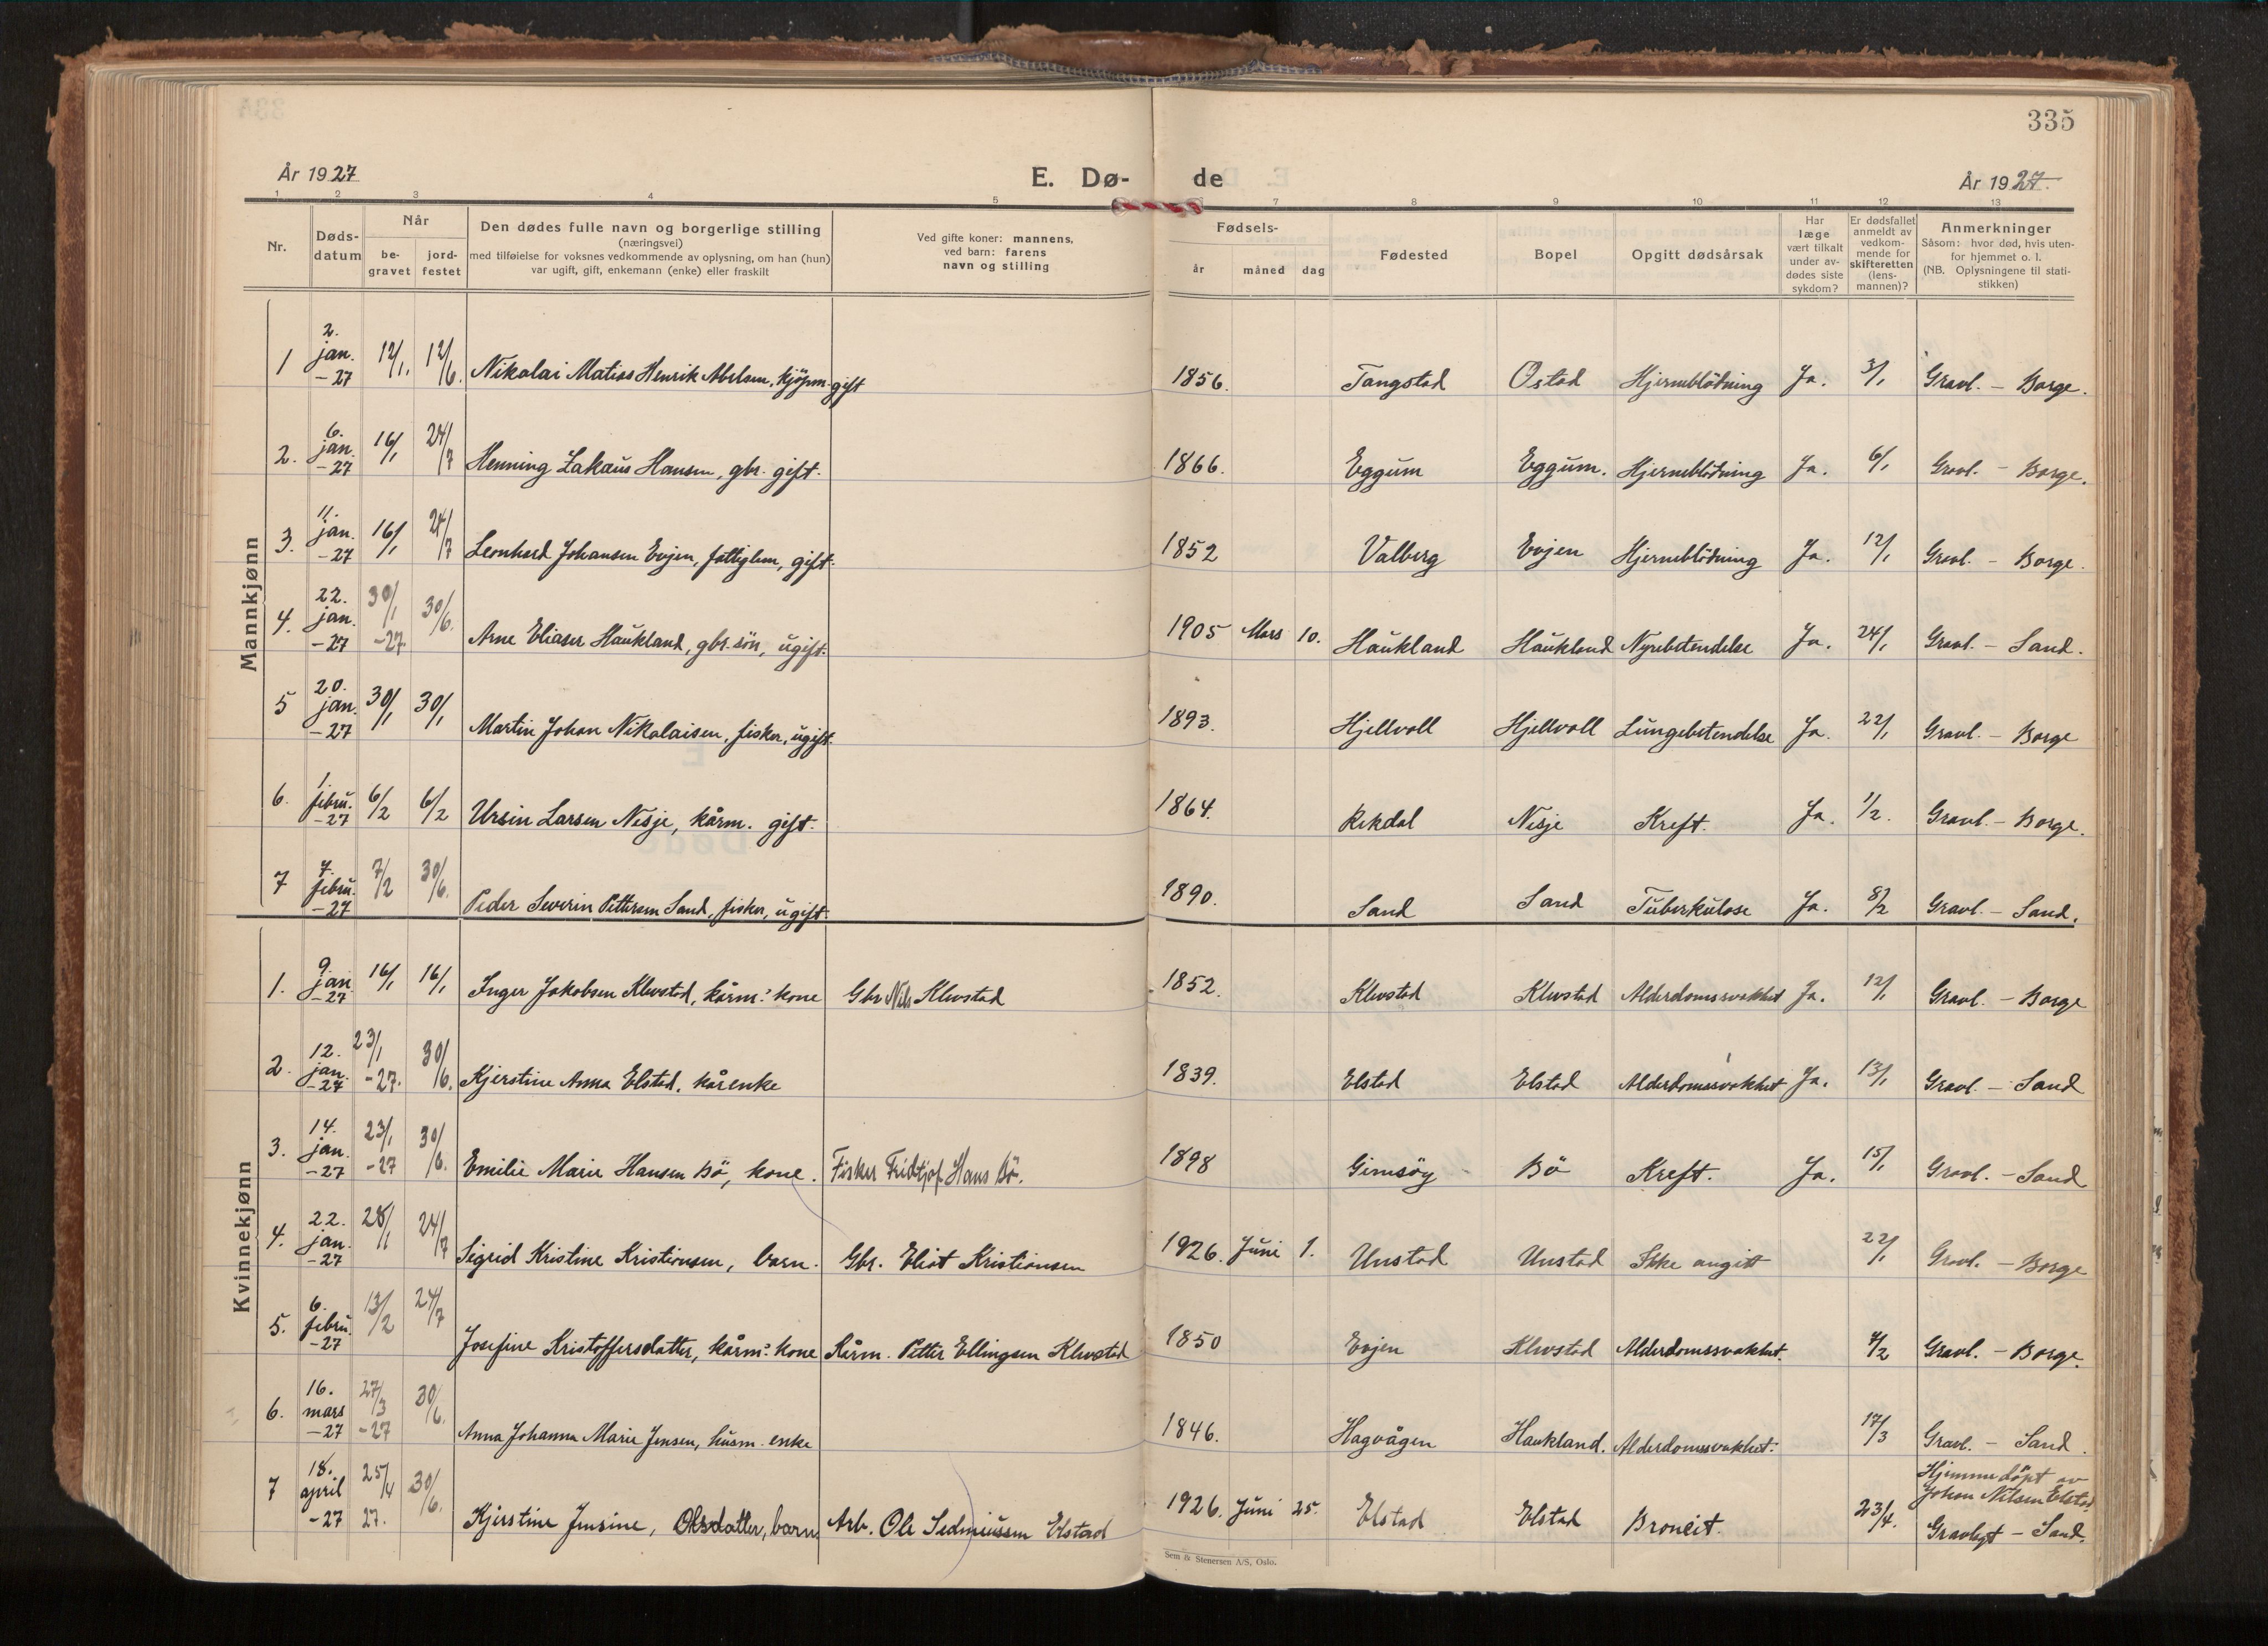 335
År 1927
E. Dø-
de
År 1927.
1 2 3 4 5 7 8 9 10 11 12 13
Nr.
Døds-
datum
Når
be-
gravet
jord-
festet
Den dødes fulle navn og borgerlige stilling
(næringsvei)
med tilføielse for voksnes vedkommende av oplysning, om han (hun)
var ugift, gift, enkemann (enke) eller fraskilt
Ved gifte koner: mannens,
ved barn: farens
navn og stilling
Fødsels-
år
måned
dag
Fødested
Bopel
Opgitt dødsårsak
Har
læge
vært tilkalt
under av-
dødes siste
sykdom?
Er dødsfallet
anmeldt av
vedkom-
mende for
skifteretten
(lens-
mannen)?
Anmerkninger
Såsom: hvor død, hvis uten-
for hjemmet o. l.
(NB. Oplysningene til stati-
stikken)
Mannkjønn
1 2. jan. -27 12/1. 12/6. Nikolai Matias Henrik Abelsen, kjöpm. gift 1856. Tangstad Ostad Hjerneblödning Ja. 3/1 Gravl. - Borge.
2. 6. jan. -27 16/1 24/7 Henning Zakæus Hansen, gbr. gift. 1866. Eggum Eggum. Hjerneblödning Ja. 6/1 Gravl. - Borge.
3. 11. jan. -27 16/1 24/7 Leonhard Johansen Evjen, fattiglem, gift. 1852 Valberg Evjen Hjerneblödning Ja. 12/1 Gravl. - Borge.
4. 22. jan. -27 30/1 -27 30/6. Arne Eliaser Haukland, gbr. sön, ugift. 1905 Mars 10. Haukland Haukland Nyrebetendelse Ja. 24/1 Gravl. - Sand.
5 20. jan. -27 30/1 30/1 Martin Johan Nikolaisen, fisker, ugift. 1893. Hjellvoll Hjellvoll Lungebetendelse Ja. 22/1 Gravl. - Borge
6. 1. febru. -27 6/2 6/2 Ursin Larsen Nesje, kårm. gift. 1864. Rekdal Nesje Kreft. Ja. 1/2. Gravl. - Borge.
7 7. febru. -27 7/2 30/6. Peder Severin Pettersen Sand, fisker, ugift. 1890. Sand Sand Tuberkulose Ja. 8/2 Gravl. - Sand.
Kvinnekjønn
1. 9. jan -27 16/1 16/1 Inger Jakobsen Klevstad, kårm.s kone Gbr Nils Klevstad 1852. Klevstad Klevstad Alderdomssvakhet Ja. 12/1 Gravl. - Borge
2. 12. jan. -27 23/1 -27. 30/6. Kjerstine Anna Elstad, kårenke 1839. Elstad Elstad Alderdomssvakhet Ja. 13/1 Gravl. - Sand
3. 14. jan. -27 23/1 -27 30/6. Emilie Marie Hansen Bö, kone. Fisker Fridtjof Hans Bö. 1898 Gimsöy Bö Kreft. Ja. 15/1 Gravl. - Sand
4. 22. jan. -27 28/1 24/7 Sigrid Kristine Kristiansen, barn. Gbr. Eliot Kristiansen 1926. Juni 1. Unstad Unstad Ikke angitt 22/1 Gravl. - Borge
5. 6. febru. -27 13/2 24/7 Josefine Kristoffersdatter, kårm.s kone Kårm. Petter Ellingsen Klevstad 1850 Evjen Klevstad Alderdomssvakhet. 7/2 Gravl. - Borge.
6. 16. mars -27 27/3 -27 30/6. Anna Johanna Marie Jensen, husm. enke 1846. Hagvågen Haukland. Alderdomssvakhet. 17/3 Gravl. - Sand.
7 18. april -27 25/4 27. 30/6. Kjerstine Jensine, Olsdatter, barn Arb. Ole Sedeniussen Elstad 1926. Juni 25. Elstad Elstad Bronkit. 23/4. Hjemmedöpt av
Johan Nilsen Elstad
Gravlagt - Sand.
Sem & Stenersen A/S, Oslo.